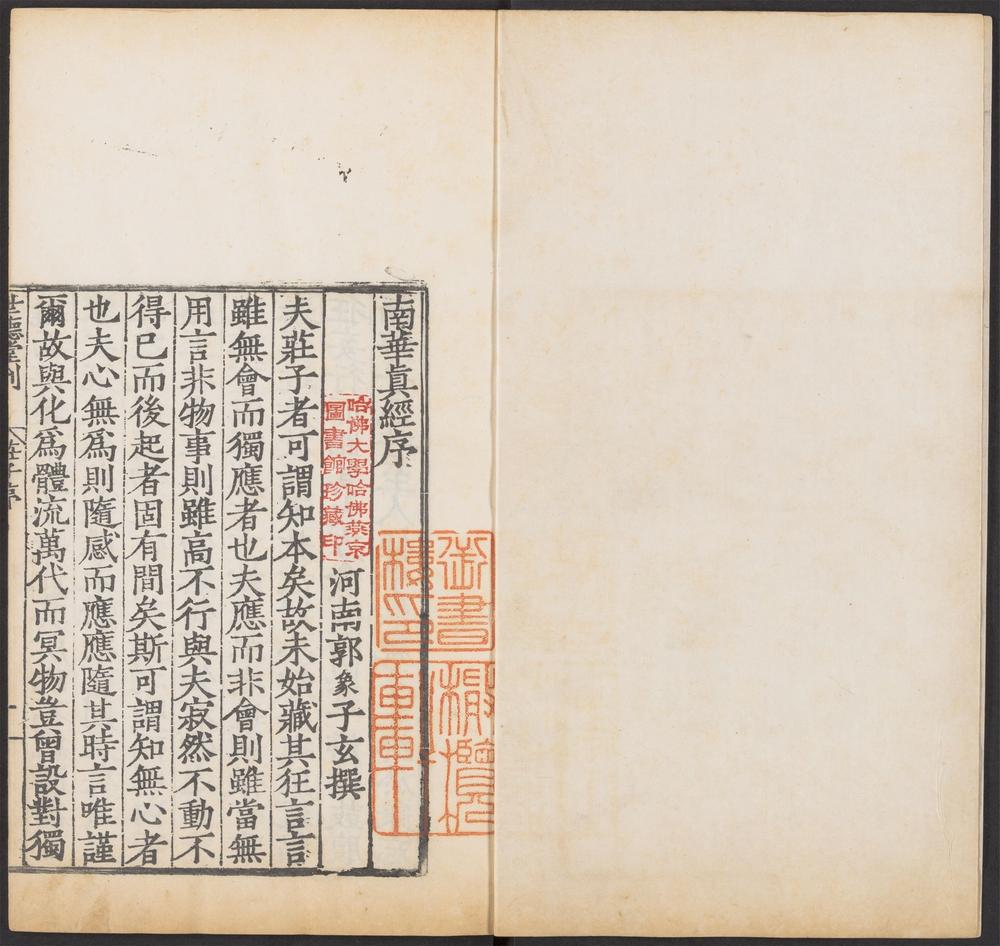 南華眞經序
河南郭象子玄撰
夫莊子者可謂知本矣故未始藏其狂言言
雖無會而獨應者也夫應而非會則雖當無
用言非物事則雖高不行與夫寂然不動不
得已而後起者固有間矣斯可謂知無心者
也夫心無爲則隨感而應應隨其時言唯謹
爾故與化爲體流萬代而冥物豈曾設對獨
世德堂刊
莊子序
一
哈佛大學哈佛燕京
圖書館珍藏印
御書
樓印